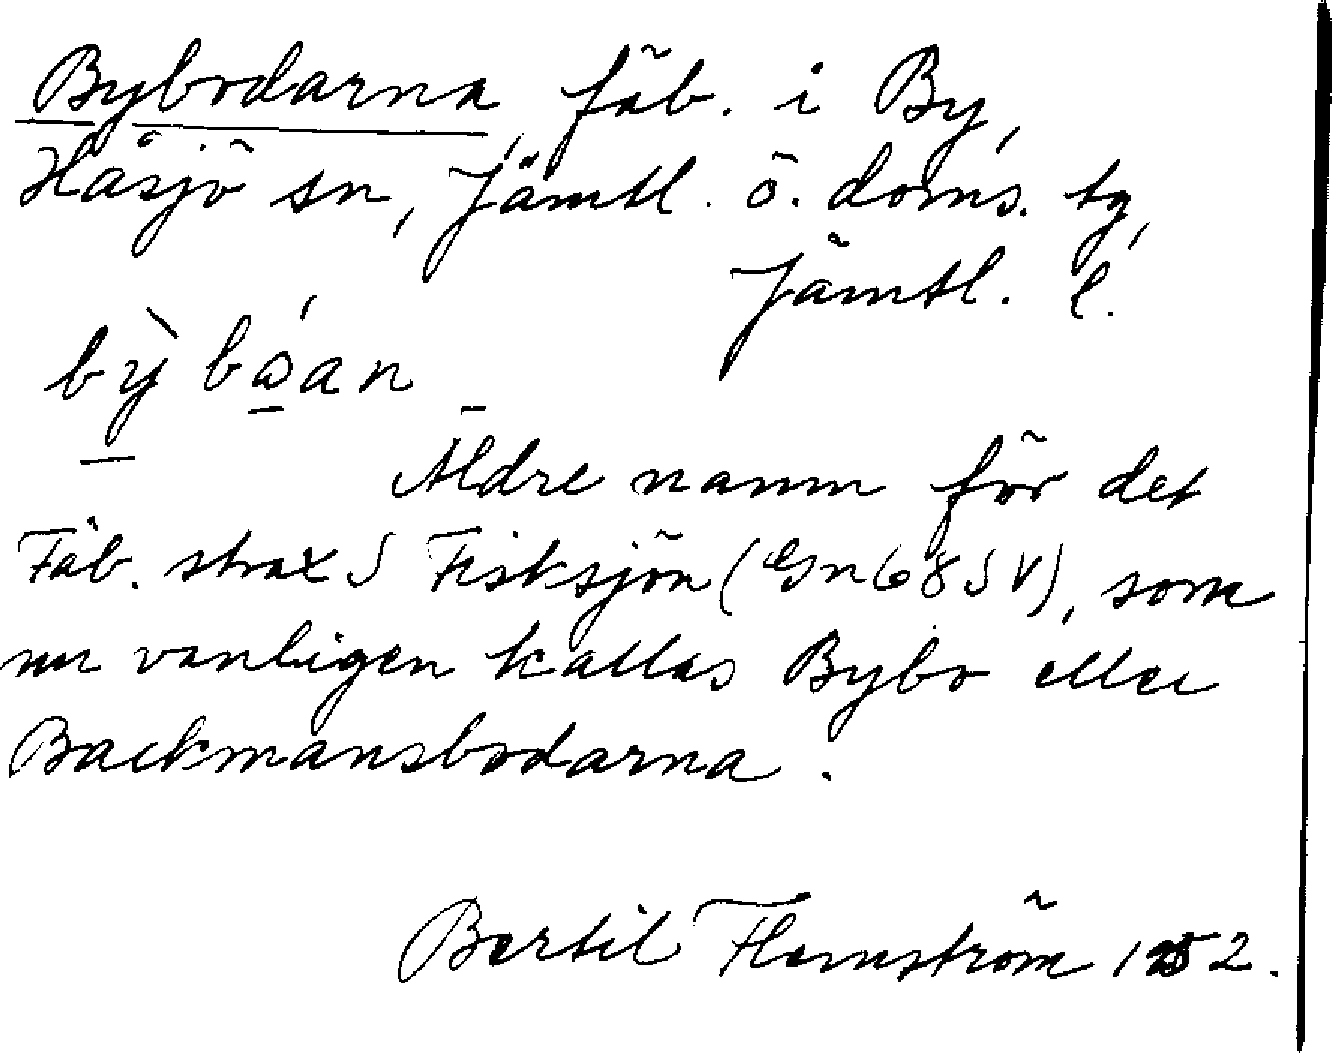 Bybodarna, fäb. i By,
Håsjö sn, Jämtl. ö. doms. tg,
Jämtl. l.
bỳ bώ̲an
Äldre namn för det
Fäb. strax S Fisksjön (Gn 68 SV), som
nu vanligen kallas Bybo eller
Backmansbodarna.
Bertil Flemström 1952.